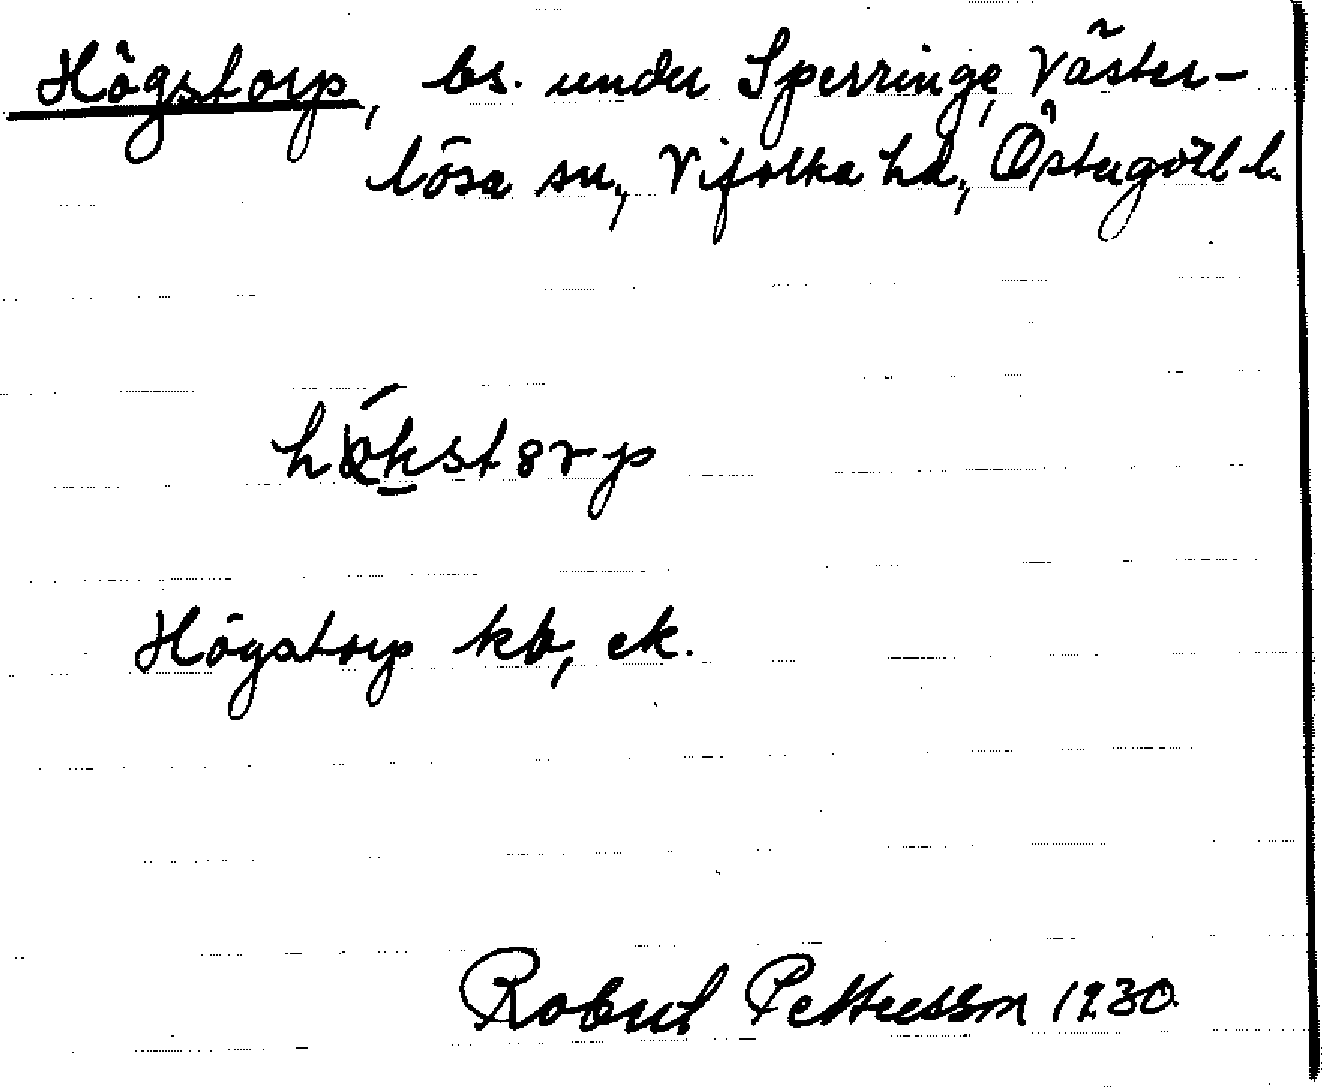 Högstorp, bs. under Sperringe, Väster-
lösa sn, Vifolka hd, Östergötl. l.
hökstorp
Högstorp kb, ek.
Robert Pettersson 1930